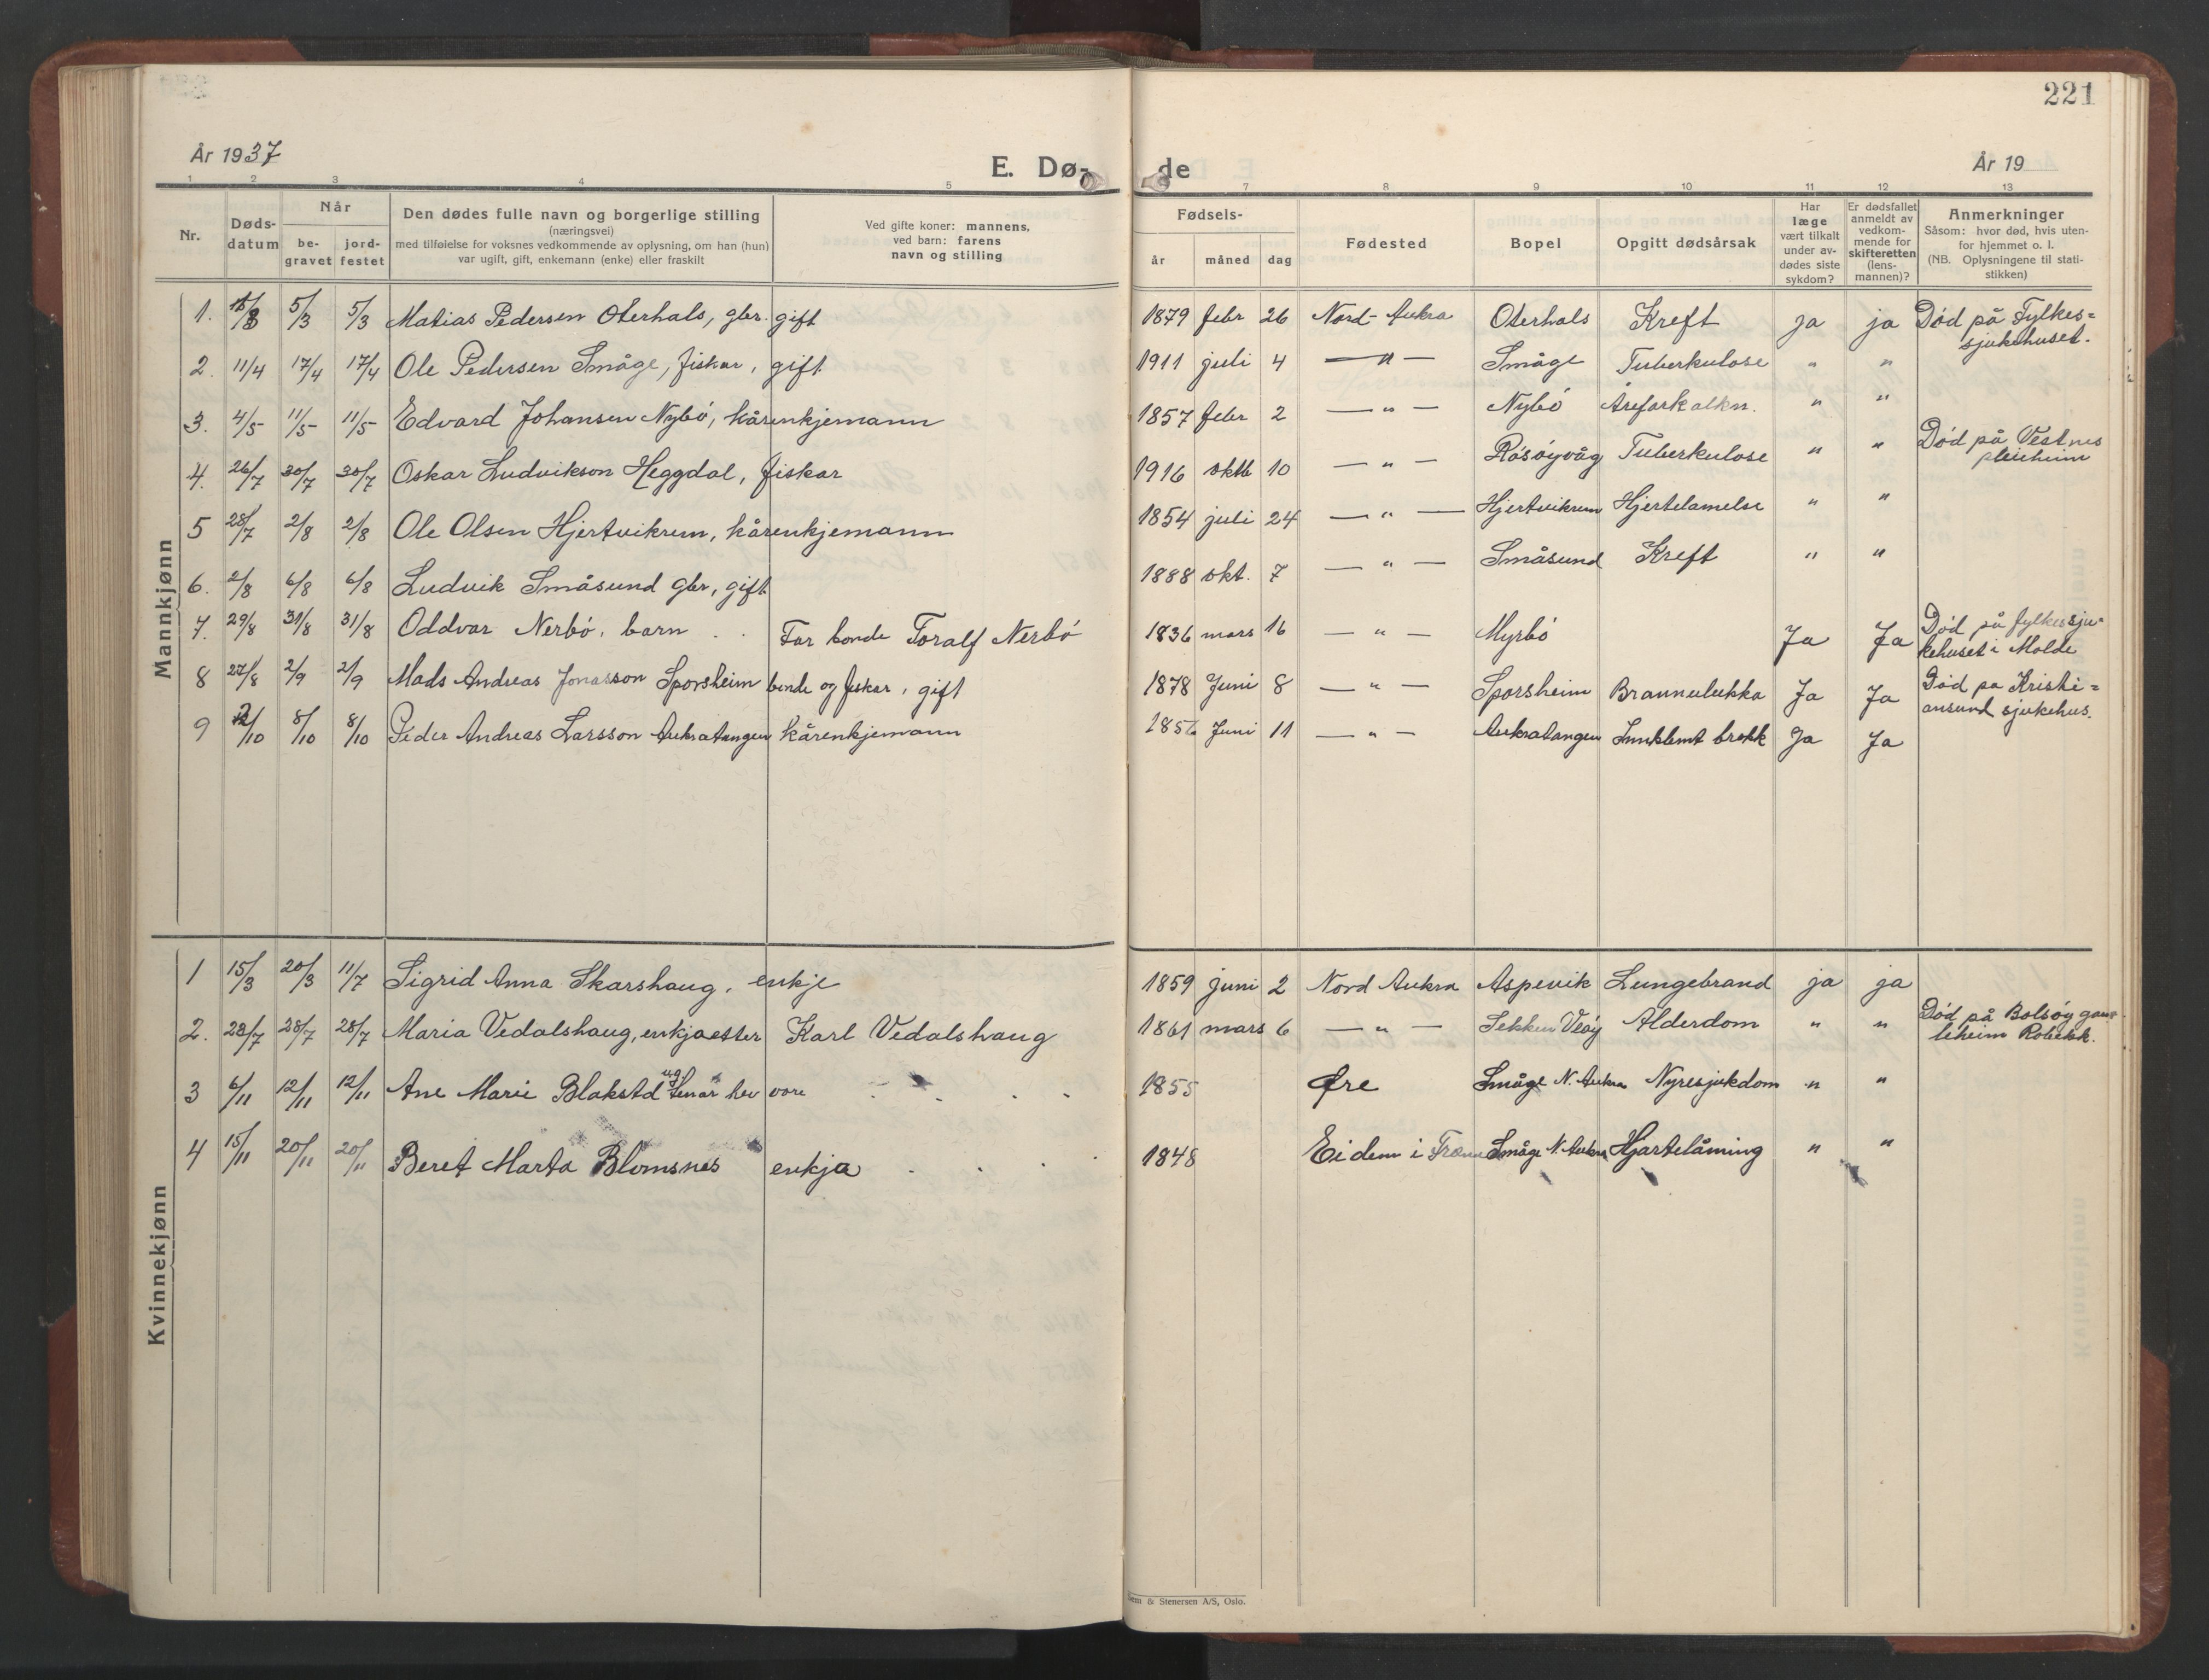 221
År 1937
E. Dø-
de
År 19
1 2 3 4 5 7 8 9 10 11 12 13
Nr.
Døds-
datum
Når
be-
gravet
jord-
festet
Den dødes fulle navn og borgerlige stilling
(næringsvei)
med tilføielse for voksnes vedkommende av oplysning, om han (hun)
var ugift, gift, enkemann (enke) eller fraskilt
Ved gifte koner: mannens,
ved barn: farens
navn og stilling
Fødsels-
år måned dag
Fødested
Bopel
Opgitt dødsårsak
Har
læge
vært tilkalt
under av-
dødes siste
sykdom?
Er dødsfallet
anmeldt av
vedkom-
mende for
skifteretten
(lens-
mannen)?
Anmerkninger
Såsom: hvor død, hvis uten-
for hjemmet o. l.
(NB. Oplysningene til stati-
stikken)
Mannkjønn
1. 5/3 5/3 Matias Pedersen Oterhals, gbr. gift 1879 febr 26 Nord-Aukra Oterhals Kreft ja ja Død på Fylkes=
sjukehuset.
2. 11/4 17/4 17/4 Ole Pedersen Småge, fiskar, gift 1911 juli 4 — " — Småge Tuberkulose " "
3. 4/5 11/5 11/5 Edvard Johansen Nybö, kårenkjemann 1857 febr 2 — " — Nybö Åreforkalkn. " "
4. 26/7 30/7 30/7 Oskar Ludvikson Heggdal, fiskar 1916 oktb 10 — " — Rösöyvåg Tuberkulose " " Død på Vestnes
pleieheim
5 28/7 2/8 2/8 Ole Olsen Hjertvikrem, kårenkjemann 1854 juli 24 — " — Hjertvikrem Hjertelamelse " "
6. 2/8 6/8 6/8 Ludvik Småsund gbr, gift 1888 okt. 7 — " — Småsund Kreft " "
7. 29/8 31/8 31/8 Oddvar Nerbö, barn . . Far bonde Toralf Nerbö 1836 mars 16 — " — Myrbö Ja Ja Død på fylkessju-
kehuset i Molde
8 27/8 2/9 2/9 Mads Andreas Jonasson Sporsheim bonde og fiskar, gift 1878 Juni 8 — " — Sporsheim Brannulukka Ja Ja Død på Kristi=
ansund sjukehus.
9 8/10 8/10 Peder Andreas Larsson Aukratangen kårenkjemann 1856 Juni 11 — " — Aukratangen Innklemt brokk Ja Ja
Kvinnekjønn
1 15/3 20/3 11/7 Sigrid Anna Skarshaug, enkje 1859 juni 2 Nord Aukra Aspevik Lungebrand ja ja
2. 23/7 28/7 28/7 Maria Vedalshaug, enkja etter Karl Vedalshaug 1861 mars 6 — " — Sekken Veöy Alderdom " " Død på Bolsöy gam-
leheim Robekk.
3 6/11 12/11 12/11 Ane Marie Blakstd ug. tenar hev vore . . . . 1855 Øre Småge N. Aukra Nyresjukdom " "
4 15/11 20/11 20/11 Beret Marta Blomsnes enkja . . . . 1848 Eidem i Småge N. Aukra Hjartelåming " "
& Stenersen A/S, Oslo.